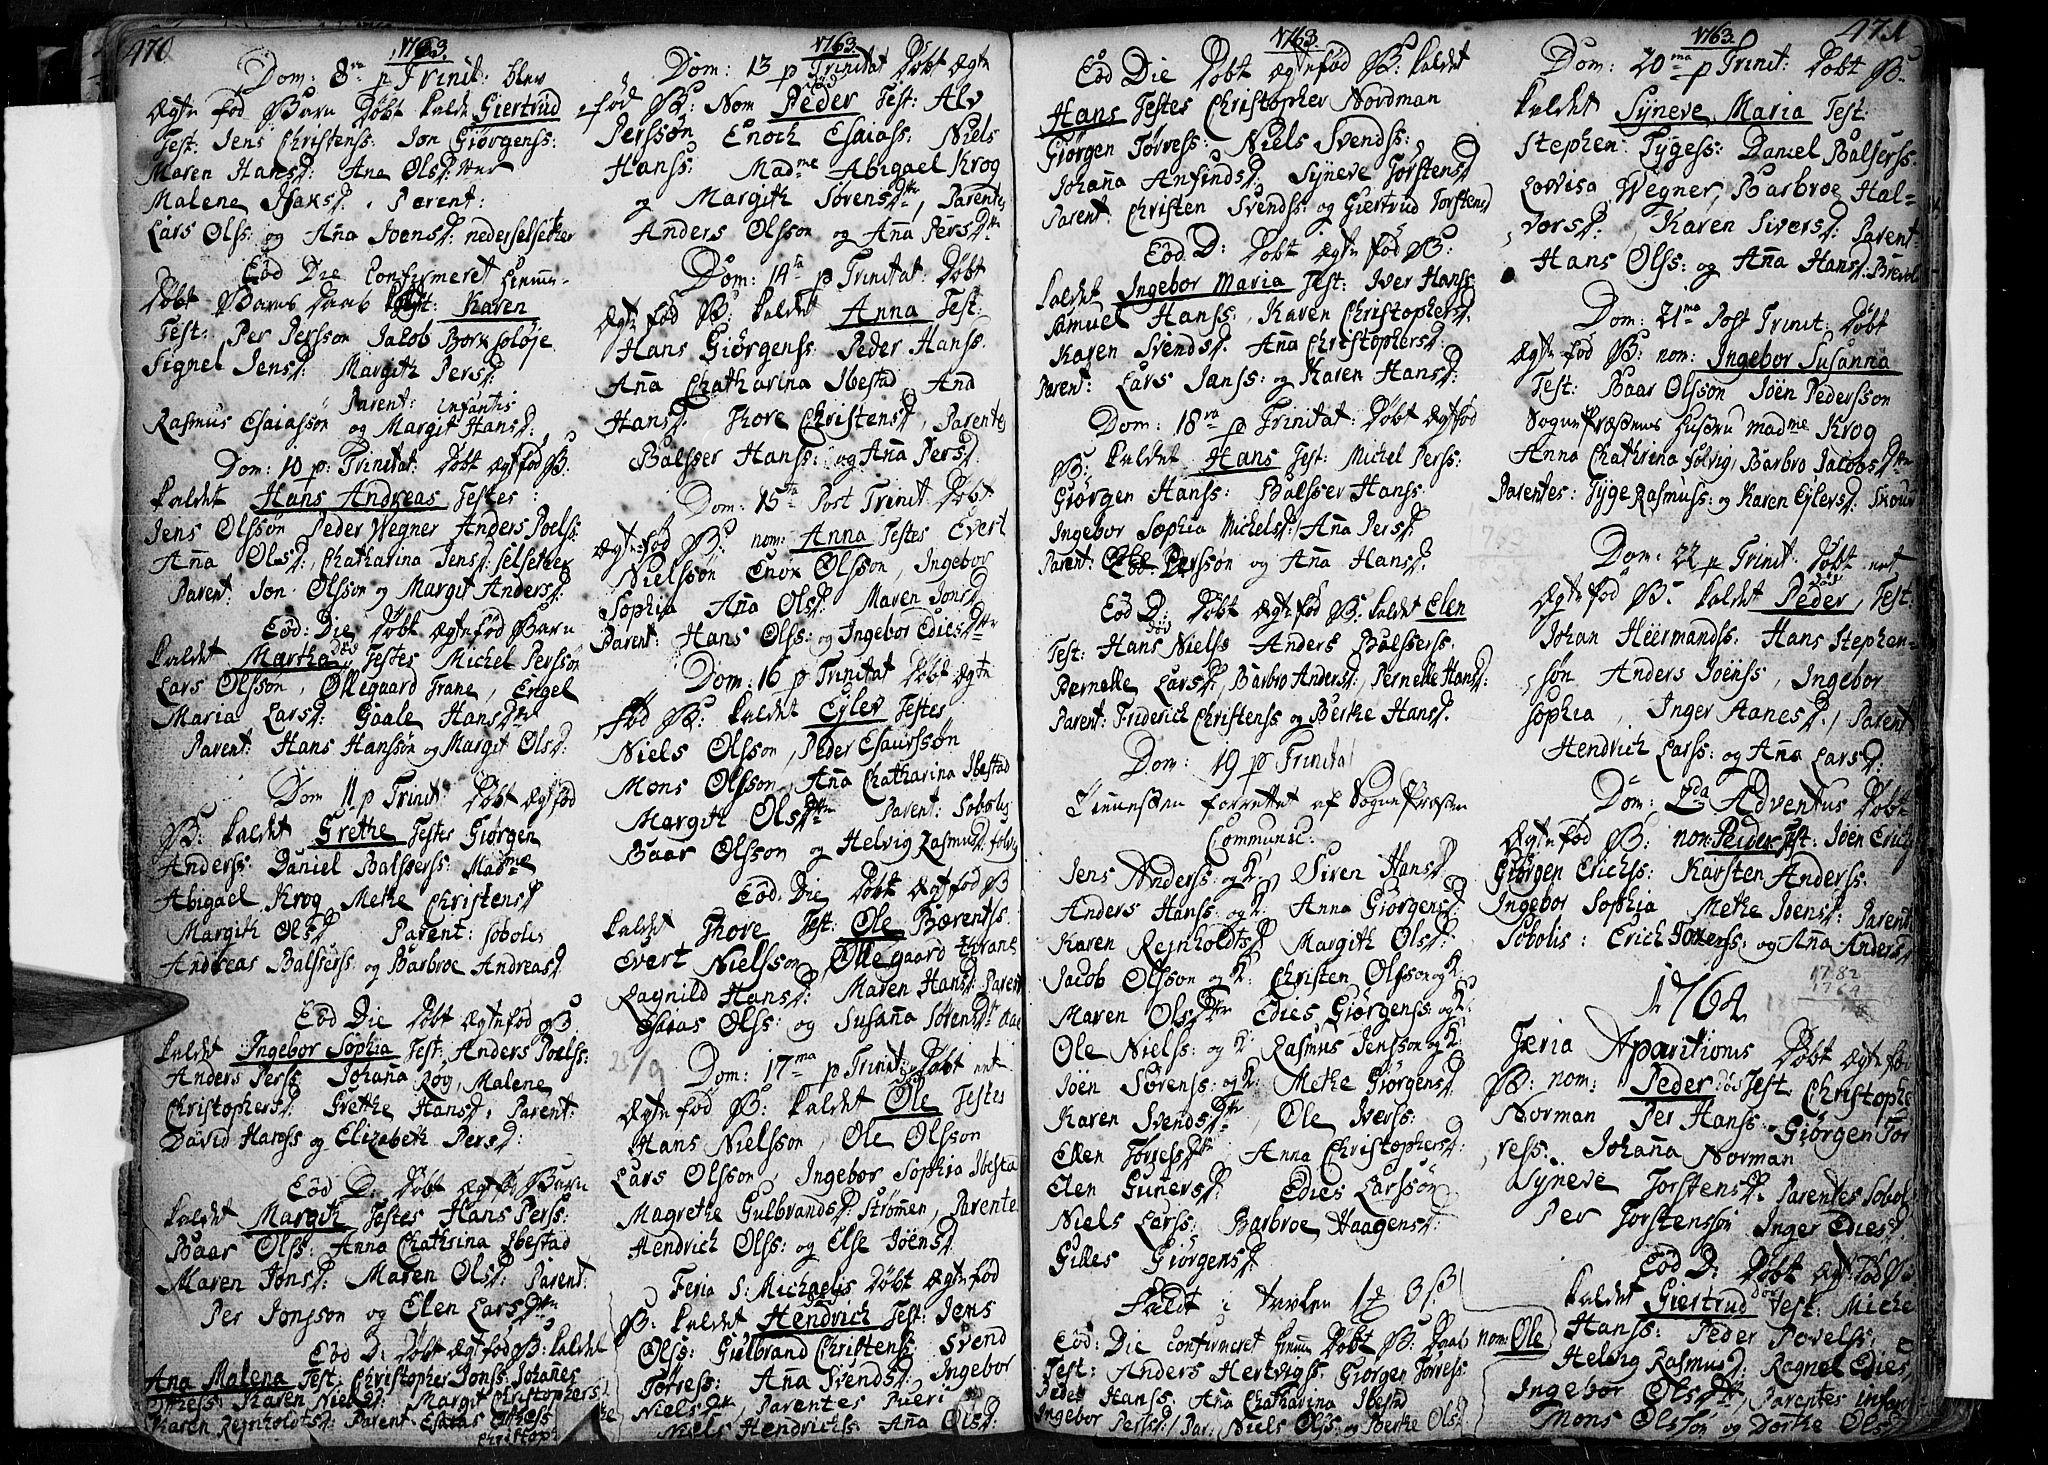 470
1763
Dom: 8va p Trinit: blev
Ægte fød Barn Døbt kaldt Giertrud
Test: Jens Christenss: Jon Giørgenss:
Maren Hansd: Ana Olsd:
Malene Isaksd. Parent:
Lars Olss: og Aña Joensd: nederselsether
Eod Die Confirmeret hiemme-
Døbt Barns Daab kaldt: Karen
Test: Per Persson Jacob Borx soløje
Signel Jensd: Margith Persd:
Parent: infantis
Rasmus Esaiassøn og Margit Hansd:
Dom: 10 p: Trinitat: Døbt Ægtefød B:
kaldet Hans Andreas Testes:
Jens Olsson Peder Wegner Anders Poelss:
Aña Olsd:, Chatharina Jensd: Selsether
Parent: Jon Olsson og Margit Andersd:
Eod: Die Døbt Ægtefød Barn
kaldet Martha død Testes Michel Perssøn
Lars Olsson, Ollegaard Trane, Engel
Maria Larsd: Gaale Hansdtr
Parent: Hans Hanssøn og Margit Olsd:
Dom 11 p Trinit: Døbt Ægtfød
B: kaldet Grethe Testes Giørgen
Anderss: Daniel Balssers: Madme
Abigael Krog Methe Christensd
Margith Olsd Parent: sobolis
Andreas Balsserss: og Barbroe Andreasd
Eod Die Døbt Ægtefød B:
kaldet Ingebor Sophia Test: Anders Poelss:
Anders Perss Johaña Røg, Malene
Christophersd: Grethe Hansd: Parent:
David Hanss og Elizabeth Persd:
Eod D: Døbt Ægtefød Barn
kaldet Margith Testes Hans Perss:
Baar Olss: Anna Chathrina Ibestad
Maren Jonsd: Maren Olsd: Parent:
Per Jonsson og Elen Larsdtr
Eod D: Døbt Ægtefød B: kaldet
Ana Malena Test: Christopher Jonss: Johañes
Karen Nielsd: Margit Christophersd
Karen Rejnholdtsd: Parent Esaias
Christoph
1763
Dom: 13 p Trinitat Døbt Ægte
fød B: Nom Peder død Test: Alv
Perssøn Enoch Esaiass: Niels
Hanss: Madme Abigael Krog
og Margith Sørensdtr, Parentes
Anders Olsson og Aña Persdtr
Dom: 14ta p Trinitat: Døbt
Ægte fød B: kaldet Anna Test:
Hans Giørgenss: Peder Hanss.
Aña Chatharina Ibestad And
Hansd: Thore Christensd, Parentes
Balsser Hanss: og Aña Persd
Dom: 15ta Post Trinit: Døbt
Ægte-fød B: nom: Anna Testes Evert
Nielsson Enox Olsson, Ingebor
Sophia Aña Olsd: Maren Jonsd
Parent: Hans Olss: og Ingebor Ediesdtr
Dom: 16 p Trinitat Døbt Ægte
fød B: kaldet Eylev Testes
Niels Olsson, Peder Esaiassøn
Mons Olsson, Aña Chatharina Ibestad
Margith Olsdtr Parent: Sobolis
Baar Olsson og Helvig Rasmusd solvig
Eod: Die Døbt Ægtefød B
kaldet Thore Test: Ole Bærentss
Evert Nielsson Ollegaard thrane
Ragnild Hansd: Maren Hansd: Parent
Esaias Olss: og Susaña Sørensdtr
25/9
Dom: 17ma p Trinit: Døbt ent
Ægte fød B: kaldet Ole Testes
Hans Nielsson, Ole Olsson
Lars Olsson, Ingebor Sophia Ibesta
Magrethe Gulbrandsd: Strømen, Parente
Hendrich Olss: og Else Jõensd
Feria S: Michaelis Døbt Ægtefød
B: kaldet Hendrich Test: Jens
Olss: Gulbrand Christenss: Svend
Torress: Aña Svendsd: Ingebor
Nielsdtr, Parentes Pueri
Niels Hendrichss: Aña Olsd:
1763
Eod Die Døbt Ægtefød B: kaldet
Hans Testes Christopher Nordman
Giørgen Torress: Niels Svendss:
Johaña Anfindsd: Syneve Torstensd
Parent: Christen Svendss: og Giertrud Torstensd
Eod D: Døbt Ægte fød B:
kaldet Ingebor Maria Test: Iver Hanss
Samuel Hanss: Karen Christophersd:
Karen Svendsd. Aña Christophersd:
Parent: Lars Janss: og Karen Hansd:
Dom: 18va p Trinitat: Døbt Ægtefød
B: kaldet Hans Test: Michel Perss:
Giørgen Hanss: Balsser Hanss
Ingebor Sophia Michelsd: Aña Persd.
Parent: Perssøn og Aña Hansd.
Eod D: Døbt Ægtefød B: kaldet Elen
Test: Hans Nielss Anders Balsserss:
Bernelle Larsd, Barbro Andersd:, Pernelle Hansd:
Parent: Friderich Christenss og Berthe Hansd.
Dom: 19 p Trinitat
Tienesten forrettet af SognePræsten
Communic:
Jens Anderss: og K: Siren Hansd
Anders Hanss: og K: Anna Giørgensd
Karen Rejnholdtsd Margith Olsd:
Jacob Olsson og K: Christen Olsson og K:
Maren Olsdtr Edies Giørgenss: og K:
Ole Nielss: og K: Rasmus Jensson og K:
Jõen Sørenss: og K: Methe Giørgensd
Karen Svendsdtr, Ole Iverss:
Ellen Torressdtr Anna Christophersd:
Elen Gunersd: Edies Larssøn
Niels Larss: Barbroe Haagensd:
Gilles Giørgensd.
Faldt i tavlen
Eod: Die confirmeret hiemme Døbt B: Daab nom: Ole
Test: Anders Hertvigss: Giørgen Torress:
Peder Hanss: Aña Chatharina Ibestad
Ingebor Persd, Par: Niels Olss: og Berthe Olsd
471
1763
Dom: 20ma p Trinit: Døbt B:
kaldet Syneve Maria Test:
Stephen Tygess: Daniel Balserss.
Lovisa Wegner, Barbroe Hal-
vorsd: Karen Siversd: Parent
Hans Olss: og Aña Hansd: Brevol
Dom: 21ma Post Trinit: Døbt
Ægte fød B: nom: Ingebor Susanna
Test: Baar Olsson Jõen Pederssøn
Sogne Præstens hustru madme Krog
Anna Chathrina solvig, Barbro Jacobsdtr
Parentes: Tyge Rasmuss: og Karen Eylersd:
Dom: 22 p Trinit: Døbt ent
Ægte fød B: kaldet Peder død, Test:
Johan Heermandss: Hans Stephen-
søn Anders Jõenss, Ingebor
Sophia, Inger Hanesd:, Parent
Hendrich Larss: og Aña Larsd:
Dom: 2da Adventus Døbt
Ægte fød B: nom: Peder Test: Jõen Erich
Giørgen Erichss: Karsten Anderss:
Ingebor Sophia Methe Jõensd: Parent
Sobolis: Erich Joenss: og Aña Andersd
1782
1764
1764
Feria Aparitionis Døbt Ægte fø
B: nom: Peder død Test Christophe
Norman Per Hanss. Giørgen Tor
ress: Johaña Norman
Syneve Torstensd: Parentes Sobol
Per Torstensøn Inger Ediesd
Eod D: Døbt Ægt-fød B:
kaldet Giertrud død Test: Miche
Hanss: Peder Povelss:
Helvig Rasmusd: Ragnel Ediesd
Ingebor Olsdtr, Parentes infant
Mons Olssøn og Dorthe Olsd